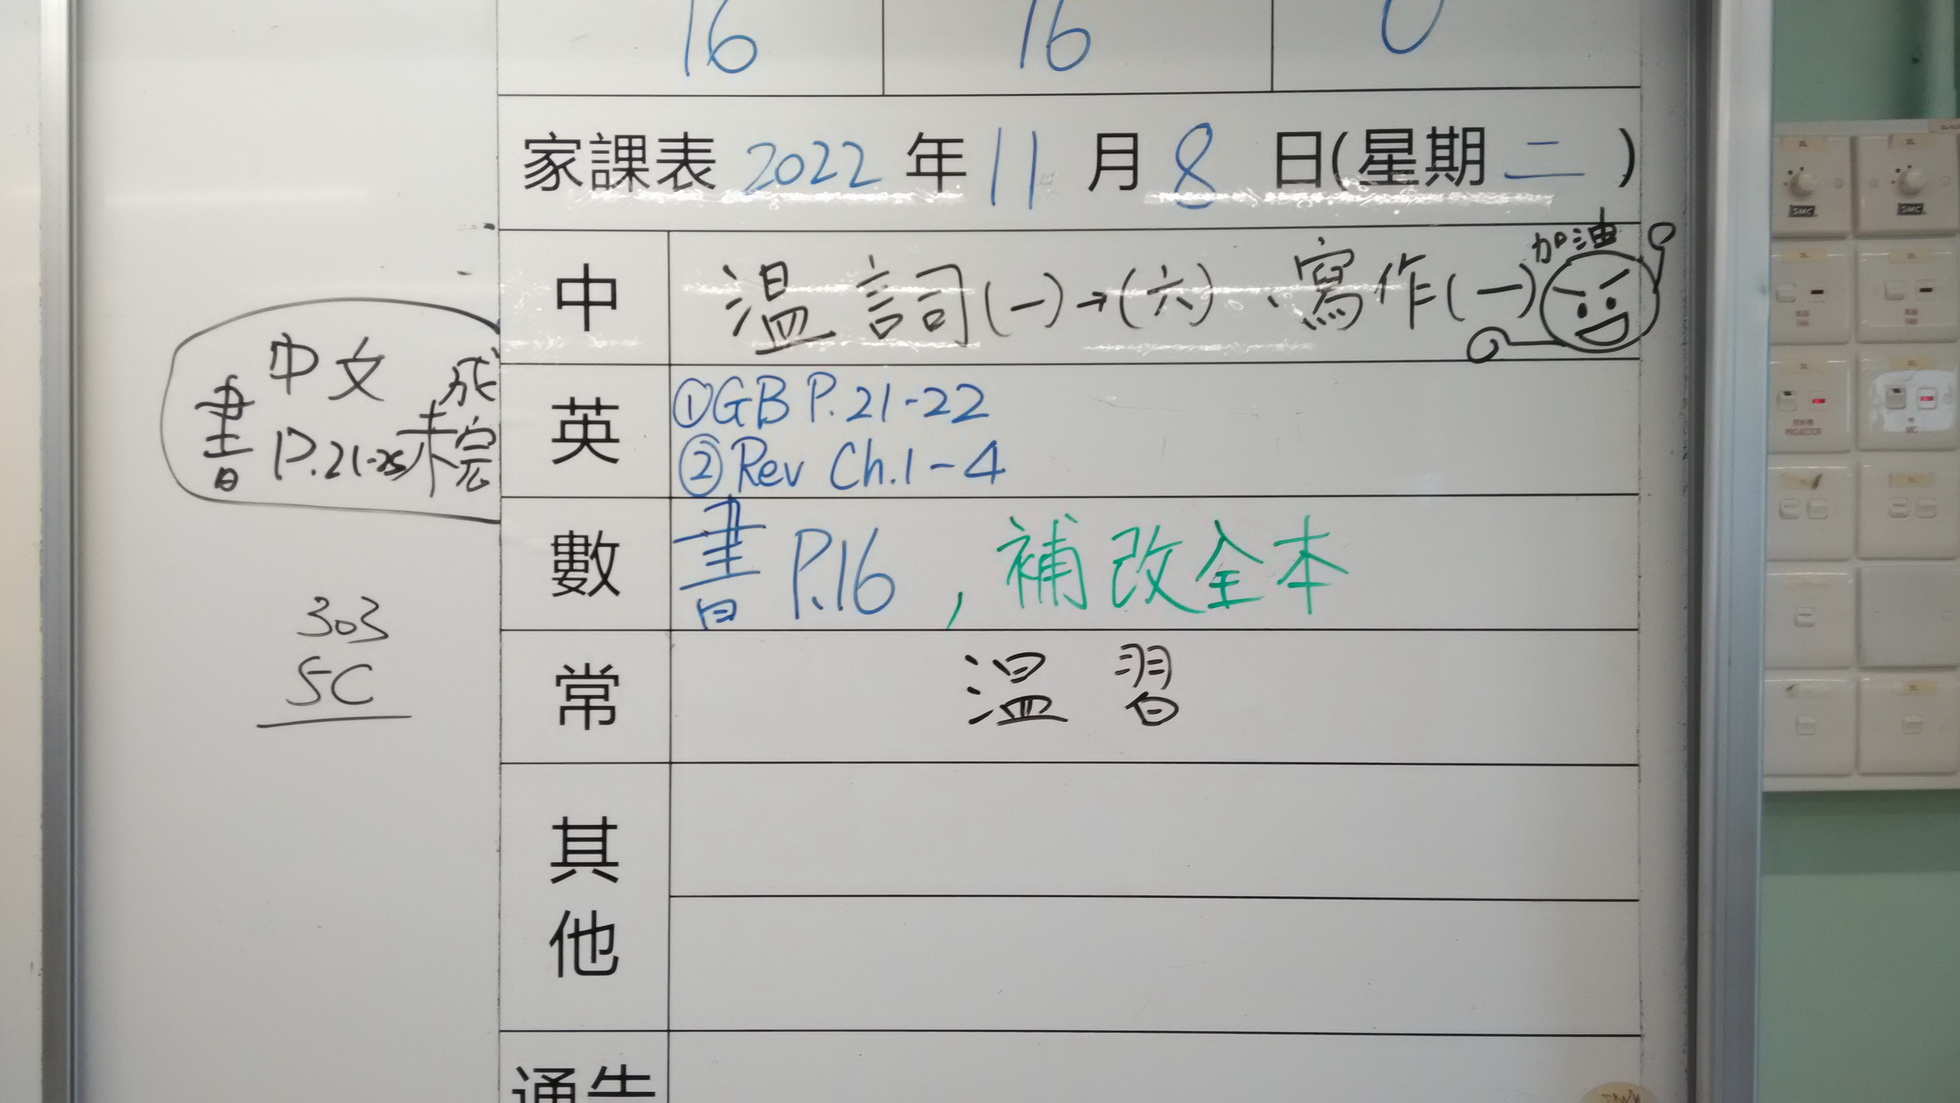 16 16 0
家課表 2022 年 11 月 8 日(星期 二 )
中 溫詞(一)→(六)、寫作(一) 加油
英 ①GB P.21-22
②Rev Ch.1-4
數 書 P.16 , 補改全本
常 溫習
其他
通告
中文
書 P.21-25 未完成
303
5C
SMC
SMC
PROJECTOR